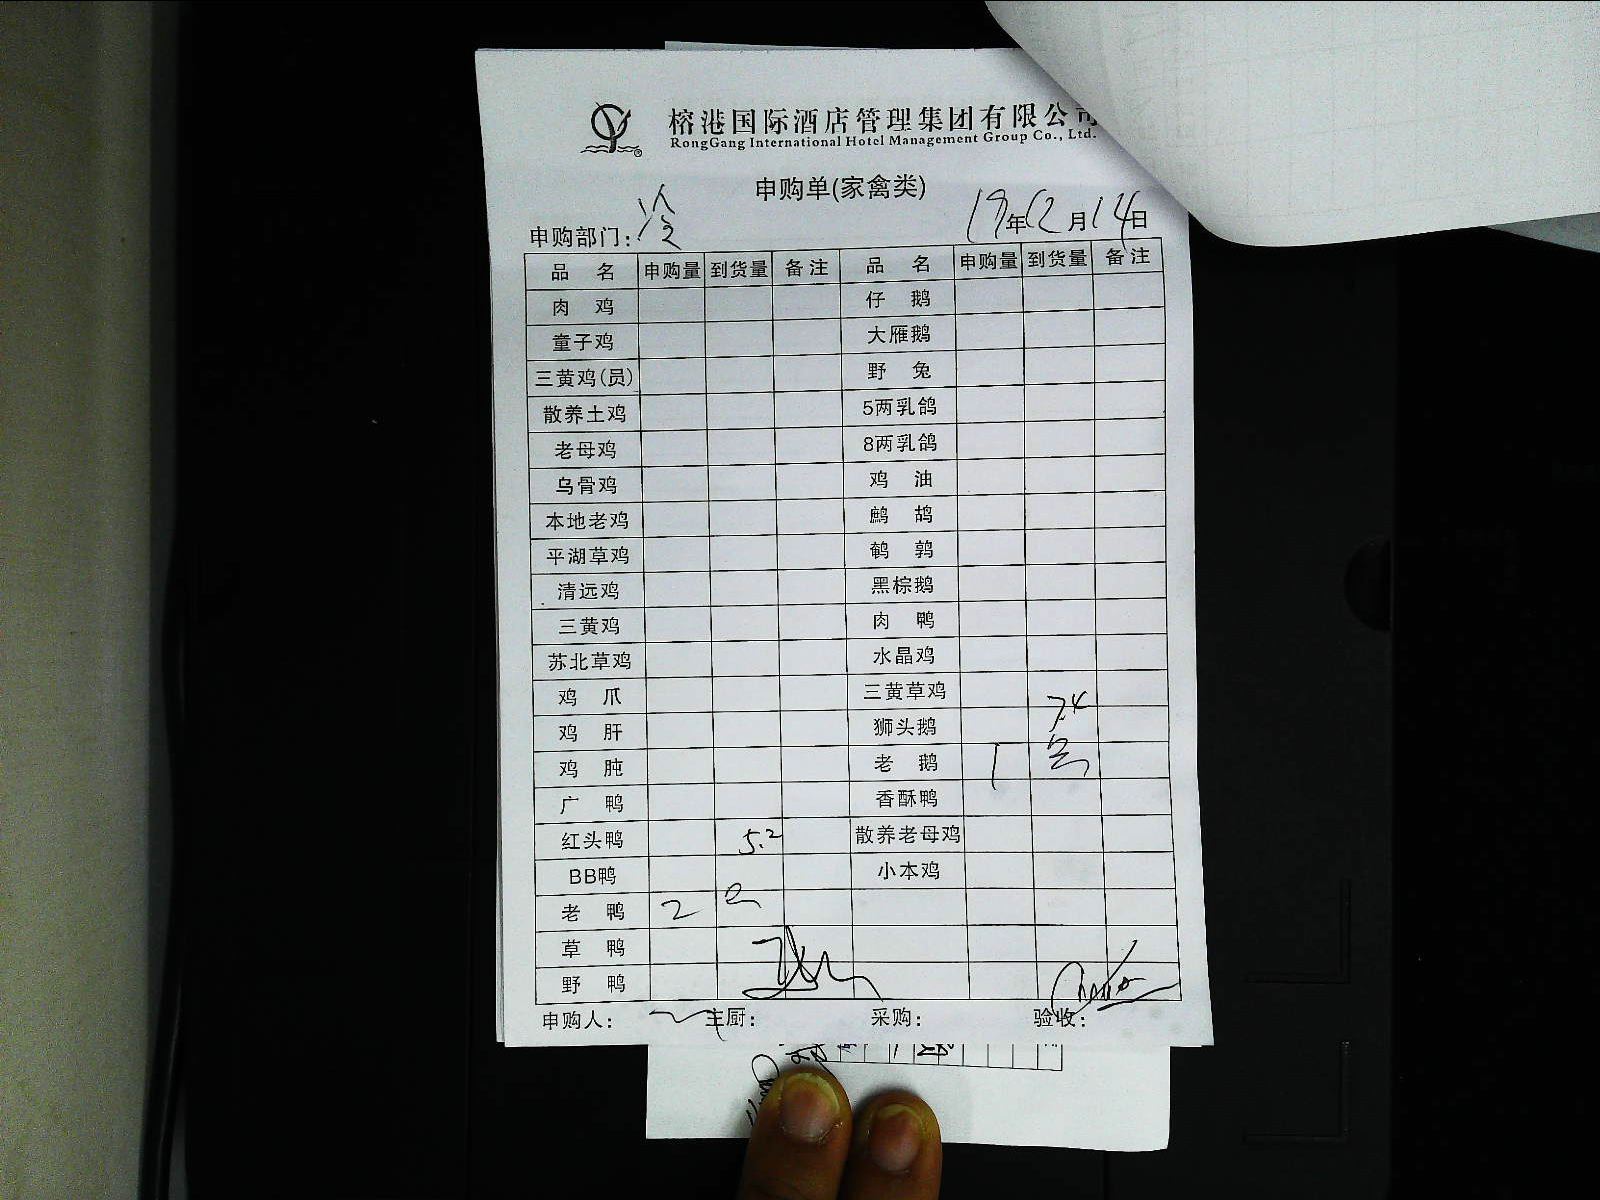 榕港国际酒店管理集团有限公司
RongGang International Hotel Management Group Co., Ltd.
申购单(家禽类)
申购部门：冷 19年12月14日
品名 申购量 到货量 备注 品名 申购量 到货量 备注
肉鸡 仔鹅
童子鸡 大雁鹅
三黄鸡(员) 野兔
散养土鸡 5两乳鸽
老母鸡 8两乳鸽
乌骨鸡 鸡油
本地老鸡 鹧鸪
平湖草鸡 鹌鹑
清远鸡 黑棕鹅
三黄鸡 肉鸭
苏北草鸡 水晶鸡
鸡爪 三黄草鸡 7.4
鸡肝 狮头鹅
鸡肫 老鹅 1
广鸭 香酥鸭
红头鸭 5.2 散养老母鸡
BB鸭 小本鸡
老鸭 2
草鸭
野鸭
申购人： 主厨： 采购： 验收：